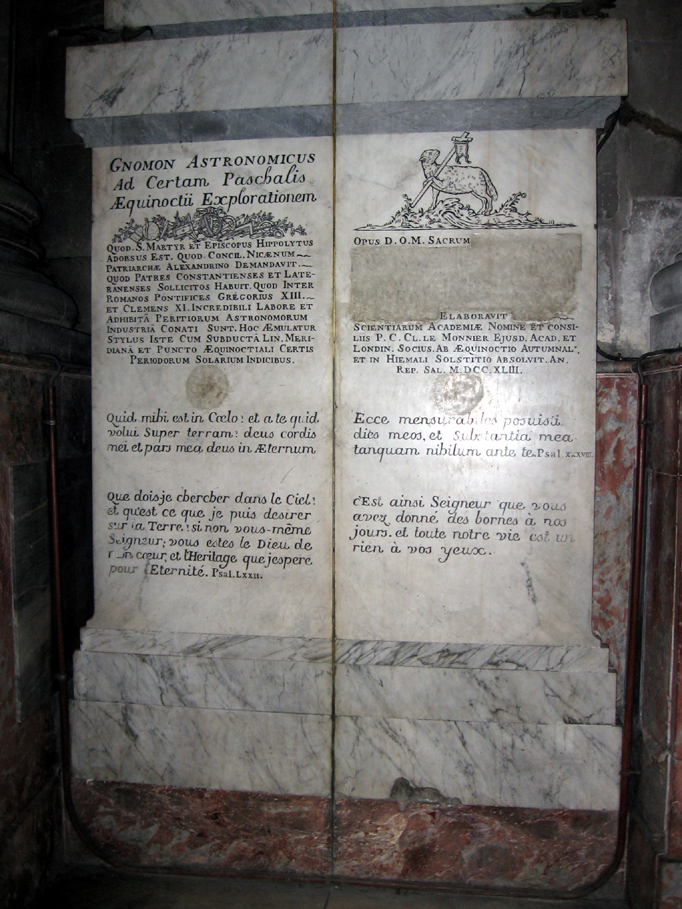 GNOMON ASTRONOMICUS
Ad Certam Paschalis
Æquinoctii Explorationem
QUOD S. MARTYR ET EPISCOPUS HIPPOLYTUS
ADORSUS EST. QUOD CONCIL. NICÆNUM
PATRIARCHÆ ALEXANDRINO DEMANDAVIT.
QUOD PATRES CONSTANTIENSES ET LATE-
RANENSES SOLLICITOS HABUIT. QUOD INTER
ROMANOS PONTIFICES GREGORIUS XIII.
ET CLEMENS XI. INCREDIBILI LABORE ET
ADHIBITÂ PERITIORUM ASTRONOMORUM
INDUSTRIÂ CONATI SUNT. HOC ÆMULATUR
STYLUS ISTE CUM SUBDUCTÂ LIN. MERI-
DIANÂ ET PUNCTO ÆQUINOCTIALI CERTIS
PERIODORUM SOLARIUM INDICIBUS.
Quid mihi est in Cœlo? et a te quid
volui Super terram? deus cordis
mei et pars mea deus in Æternum
Que dois-je chercher dans le Ciel?
et qu'est ce que je puis desirer
sur la Terre? si non vous-même
Seigneur; vous estes le Dieu de
mon cœur, et l'Heritage que j'espere
pour l'Eternité. Psal. LXXII.
OPUS D. O. M. SACRUM
ELABORAVIT
SCIENTIARUM ACADEMIÆ NOMINE ET CONSI-
LIIS P. C. CL. LE MONNIER EJUSD. ACAD. ET
LONDIN. SOCIUS. AB ÆQUINOCTIO AUTUMNALI,
ET IN HIEMALI SOLSTITIO ABSOLVIT. AN.
REP. SAL. M.DCC.XLIII.
Ecce mensurabiles posuisti
dies meos, et substantia mea
tanquam nihilum ante te. Psal.
C'Est ainsi Seigneur que vous
avez donné des bornes à nos
jours. et toute notre vie est un
rien à vos yeux.